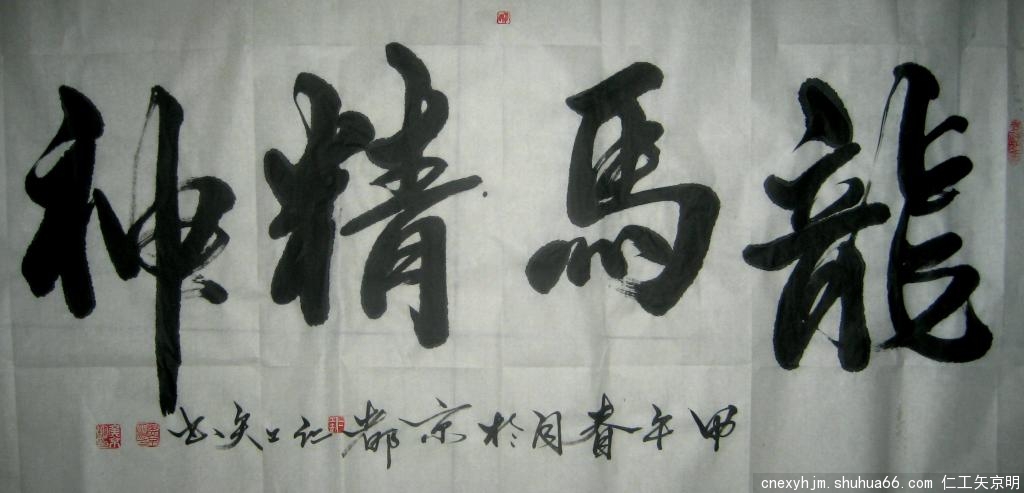 龍馬精神
甲午春月於京都仁工矢书
cnexyhjm.shuhua66.com 仁工矢京明